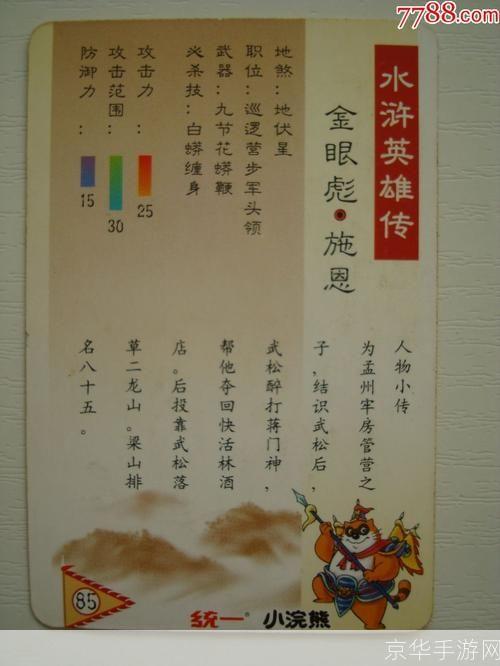 7788.com
水浒英雄传
金眼彪·施恩
地煞：地伏星
职位：巡逻营步军头领
武器：九节花蟒鞭
必杀技：白蟒缠身
攻击力：
25
攻击范围：
30
防御力：
15
人物小传
为孟州牢房管营之
子，结识武松后，
武松醉打蒋门神，
帮他夺回快活林酒
店。后投靠武松落
草二龙山。梁山排
名八十五。
85
统一® 小浣熊
京华手游网